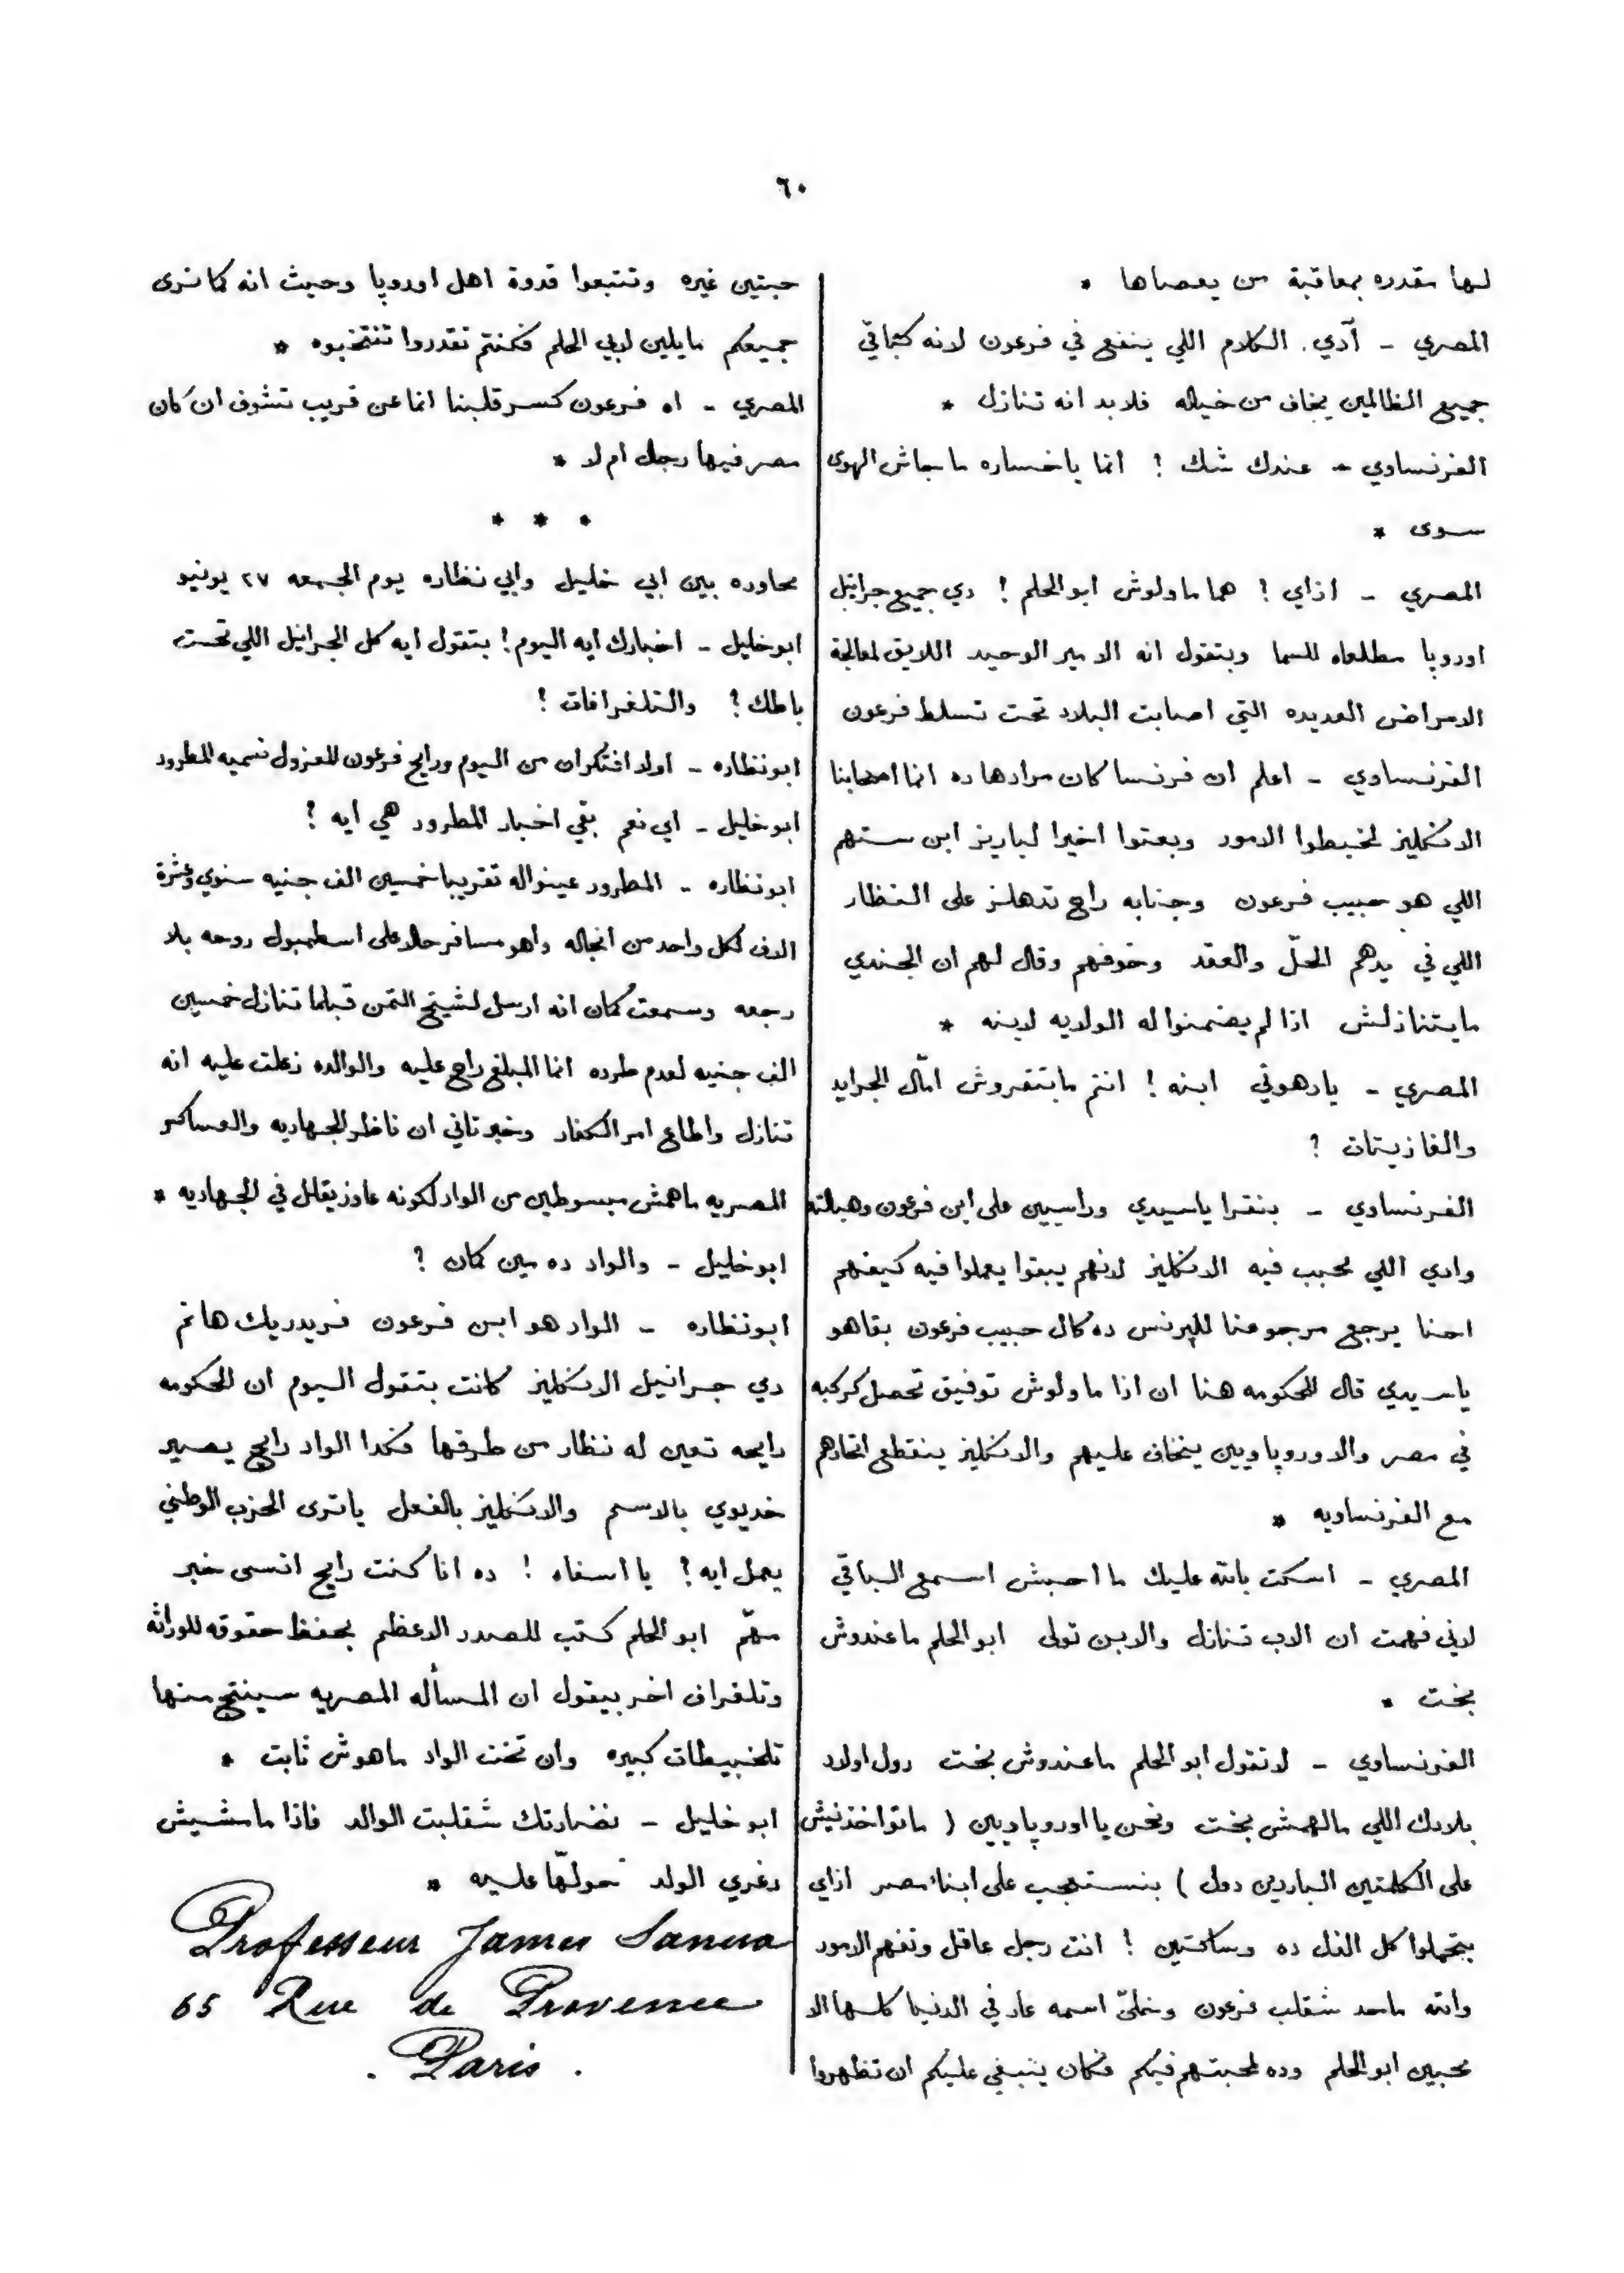 ٦٠
لها مقدره بمعاقبة من يعصاها *
المصري - آدي الكلام اللي ينفع في فرعون لانه كباقي
جميع الظالمين يخاف من خياله فلابد انه تنازل *
الفرنساوي - عندك شك ؟ انما ياخساره ماجاش الهوى
سوى *
المصري - ازاي ؟ هما ماولوش ابو الحلم ! دي جميع جرانيل
اوروپا مطلعاه للسما وبتقول انه الامير الوحيد اللايق لمعالجة
الامراض العديده التي اصابت البلاد تحت تسلط فرعون
الفرنساوي - اعلم ان فرنسا كان مرادها ده انما اصحابنا
الانكليز لخبطوا الامور وبعتوا اخيرا لباريز ابن ستهم
اللي هو حبيب فرعون وجنابه راح تدهلز على النظار
اللي في يدهم الحلّ والعقد وخوفهم وقال لهم ان الجندي
مايتنازلش اذا لم يضمنوا له الولايه لابنه *
المصري - يادهوتي ابنه ! انتم مابتقروش امّال الجرايد
والغازيتات ؟
الفرنساوي - بنقرا ياسيدي وراسيين على ابن فرعون وهبالته
وادي اللي محبب فيه الانكليز لانهم يبقوا يعملوا فيه كيفهم
احنا يرجع مرجوعنا للپرنس ده كال حبيب فرعون بقاهو
ياسيدي قال للحكومه هنا ان اذا ماولوش توفيق تحصل كركبه
في مصر والاوروپاويين ينخاف عليهم والانكليز ينقطع اتحادهم
مع الفرنساويه *
المصري - اسكت بالله عليك ما احبش اسمع الباقي
لاني فهمت ان الاب تنازل والابن تولى ابو الحلم ماعندوش
بخت *
الفرنساوي - لا تقول ابو الحلم ماعندوش بخت دول اولاد
بلادك اللي مالهمش بخت ونحن يا اوروپاويين ( ماتواخذنيش
على الكلمتين الباردين دول ) بنستعجب على ابناء مصر ازاي
بتحملوا كل الذل ده وساكتين ! انت رجل عاقل وتفهم الامور
والله ماحد شقلب فرعون وخلىّ اسمه عار في الدنيا كلها الا
محبين ابو الحلم وده لمحبتهم فيكم فكان ينبغي عليكم ان تظهروا
حبتين غيره وتتبعوا قدوة اهل اوروپا وحيث انه كما نرى
جميعكم مايلين لابي الحلم فكنتم تقدروا تنتخبوه *
المصري - اه فرعون كسر قلبنا انما عن قريب تشوف ان كان
مصر فيها رجال ام لا *
* * *
محاوره بين ابي خليل وابي نظاره يوم الجمعه ٢٧ يونيو
ابو خليل - اخبارك ايه اليوم ! بتقول ايه كل الجرانيل اللي تحت
باطك ؟ والتلغرافات ؟
ابونظاره - اولا افتكر ان من اليوم ورايح فرعون المعزول نسميه المطرود
ابو خليل - اي نعم بقي اخبار المطرود هي ايه ؟
ابونظاره - المطرود عينواله تقريبا خمسين الف جنيه سنوي وعشرة
الاف لكل واحد من انجاله واهو مسافر حالا على اسطمبول روحه بلا
رجعه وسمعت كمان انه ارسل لشيخ التمن قبلما تنازل خمسين
الف جنيه لعدم طرده انما المبلغ راح عليه والوالده زعلت عليه انه
تنازل واطاع امر الكفار وخبر تاني ان ناظر الجهاديه والعساكر
المصريه ماهمش مبسوطين من الواد لكونه عاوز يقلل في الجهاديه *
ابو خليل - والواد ده مين كمان ؟
ابونظاره - الواد هو ابن فرعون فريدريك هانم
دي جرانيل الانكليز كانت بتقول اليوم ان الحكومه
رايحه تعين له نظار من طرفها فكدا الواد رايح يصير
خديوي بالاسم والانكليز بالفعل ياترى الحزب الوطني
يعمل ايه ؟ يا اسفاه ! ده انا كنت رايح انسى خبر
مهّم ابو الحلم كتب للصدر الاعظم بحفظ حقوقه للوراثه
وتلغراف اخر بيقول ان المسأله المصريه سينتج منها
تلخبيطات كبيره وان تخت الواد ماهوش ثابت *
ابو خليل - نضارتك شقلبت الوالد فاذا مامشيش
دغري الولد حولهّا عليه *
Professeur James Sanua
65 Rue de Provence
. Paris .